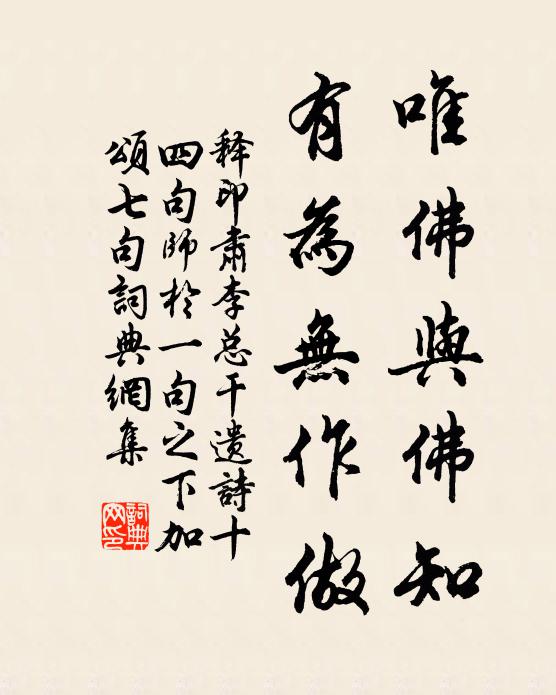 唯佛與佛知
有為無作做
释印肃李总干遗詩十
四句師於一句之下加
頌七句詞典網集
詞典网印